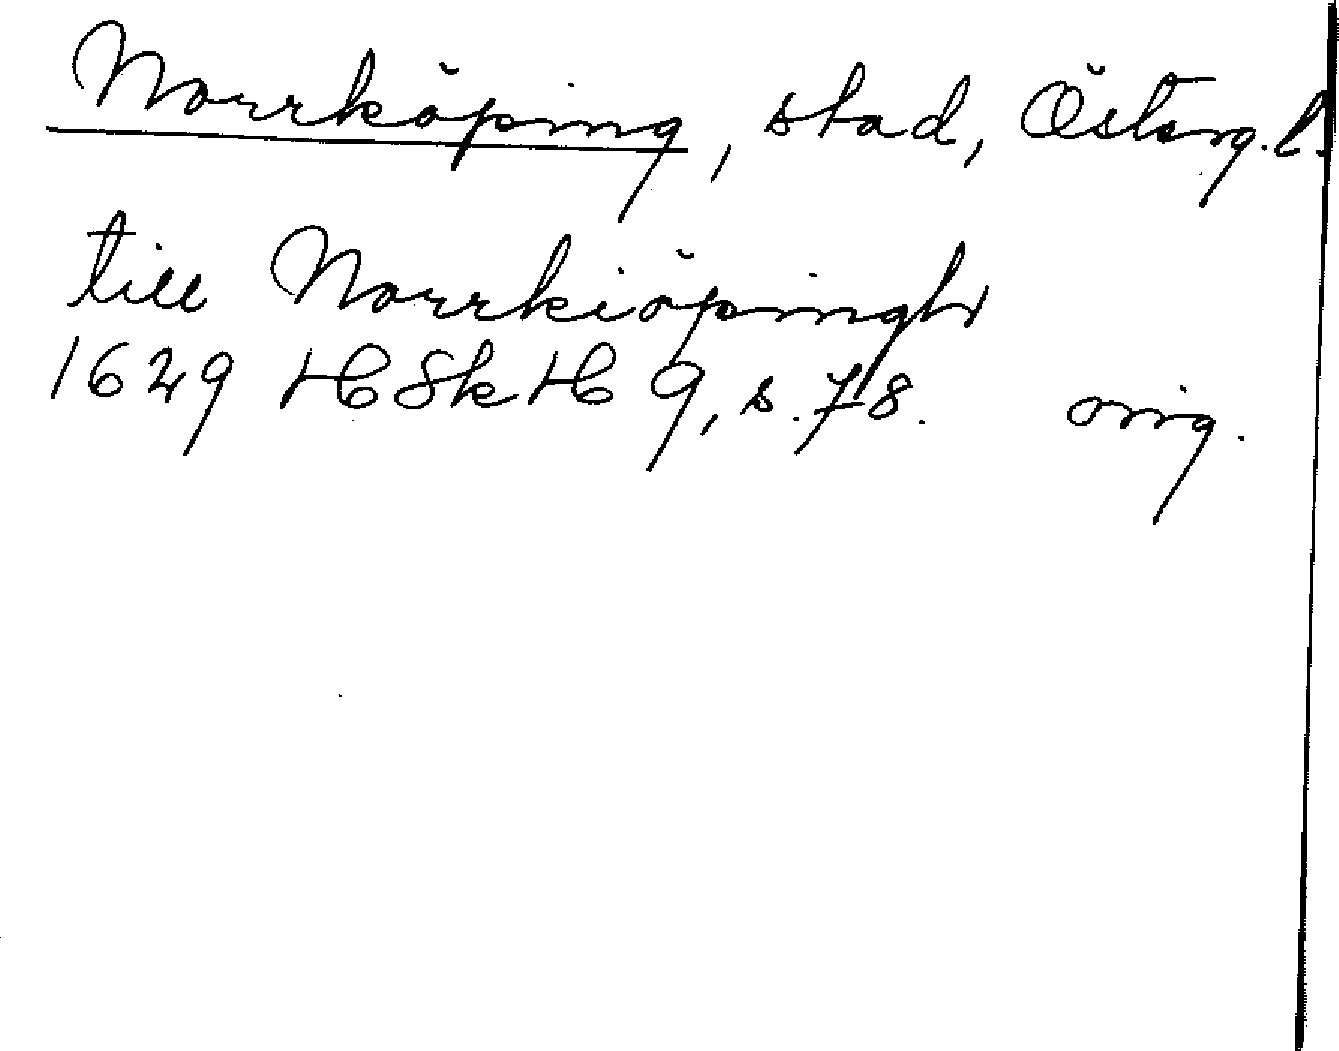 Norrköping, stad, Österg. l.
till Norrkiöpingh
1629 HSkH 9, s. 78. orig.